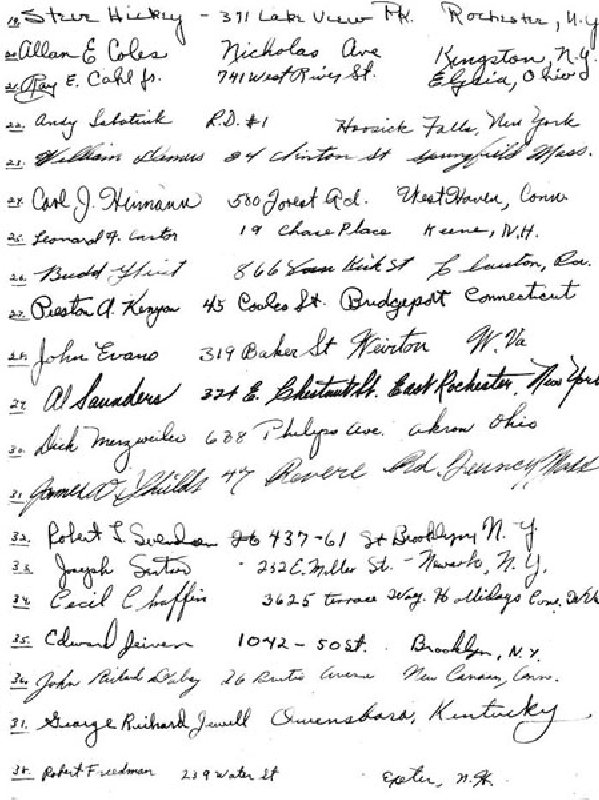 19. Steve Hickey - 371 Lake View Pk. Rochester, N.Y.
20. Allan E Coles Nicholas Ave Kingston, N.Y.
21. Ray E. Cahl Jr. 741 West River St. Elyria, Ohio
22. Andy R.D. #1 Hoosick Falls, New York
23. William 24 Clinton St Springfield Mass.
24. Carl J. Heimann 580 Forest Rd. West Haven, Conn
25. Leonard F. Cantor 19 Chase Place Keene, N.H.
26. Budd 866 Kirk St
27. Preston A. Kenyon 45 Cowles St. Bridgeport Connecticut
28. John Evans 319 Baker St Weirton W. Va
29. Al Saunders 324 E. Chestnut St. East Rochester, New York
30. Dick 688 Phelps Ave. Akron Ohio
31. James D. Shields 47 Revere Rd. Quincy, Mass
32. Robert L. 437-61 St Brooklyn, N.Y.
33. Joseph 252 E. Miller St. - Newark, N.Y.
34. Cecil Chaffin 3625 Terrace Way
35. Edward 1042-50 St. Brooklyn, N.Y.
36. John Richard 26 Avenue New Canaan, Conn.
37. George Richard Jewell Owensboro, Kentucky
38. Robert Freedman 239 Water St Exeter, N.H.